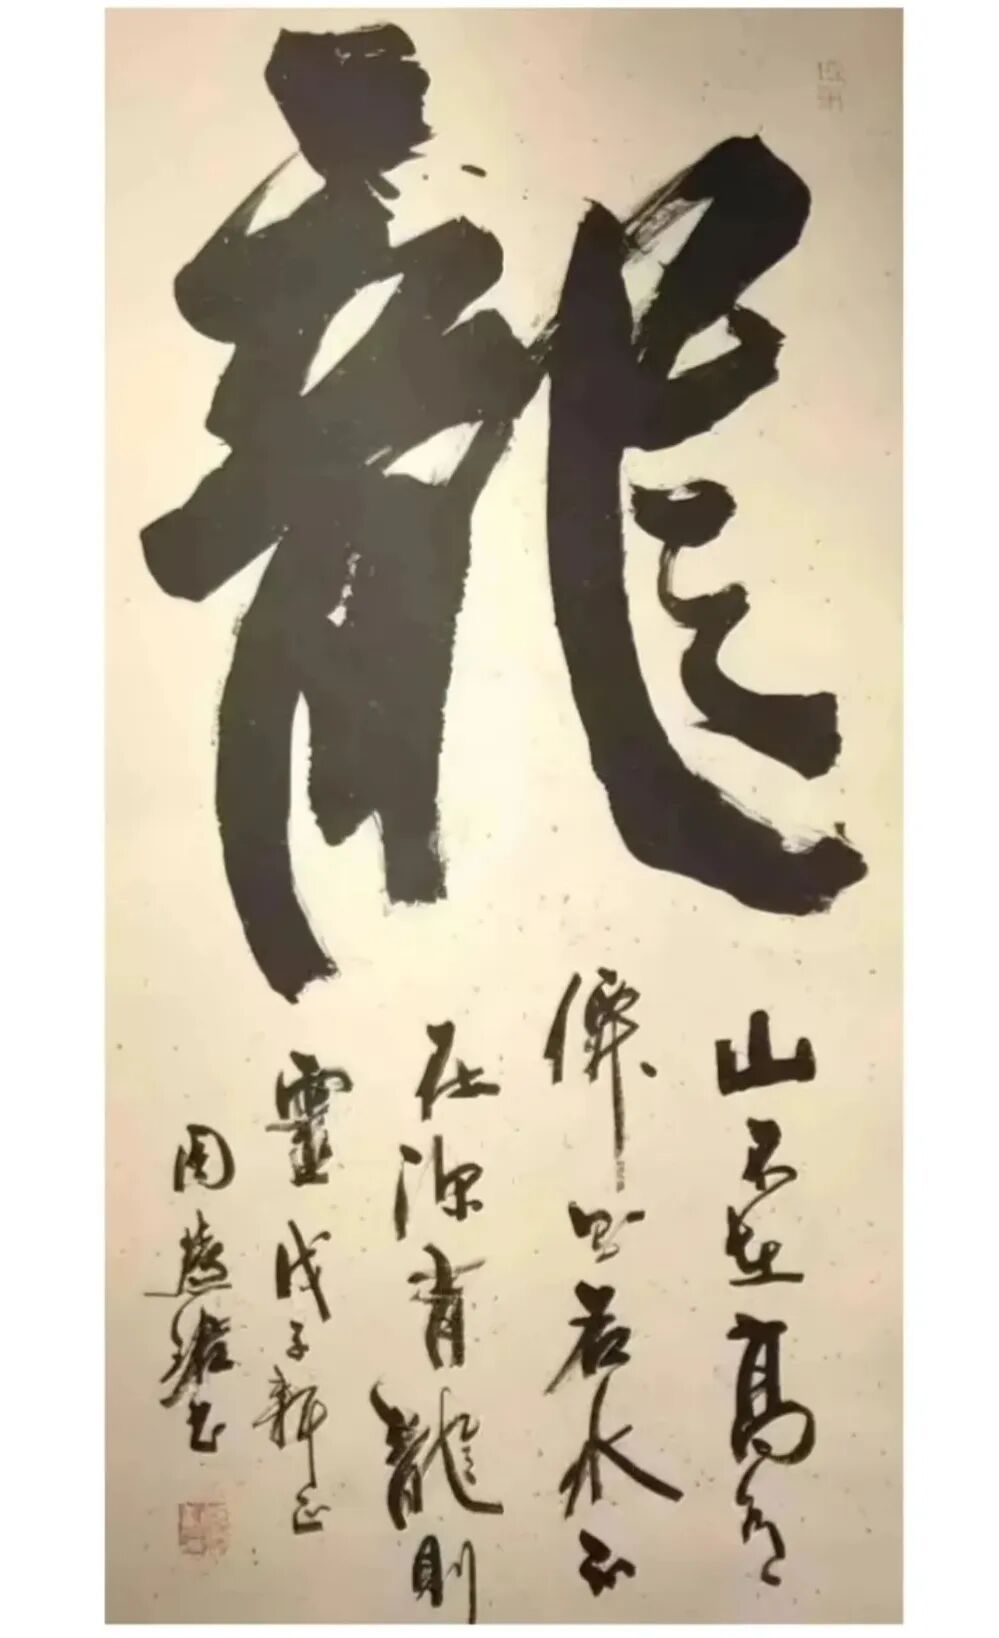 龍
山不在高有
僊则名水不
在深有龍則
靈戊子新正
周慧珺书